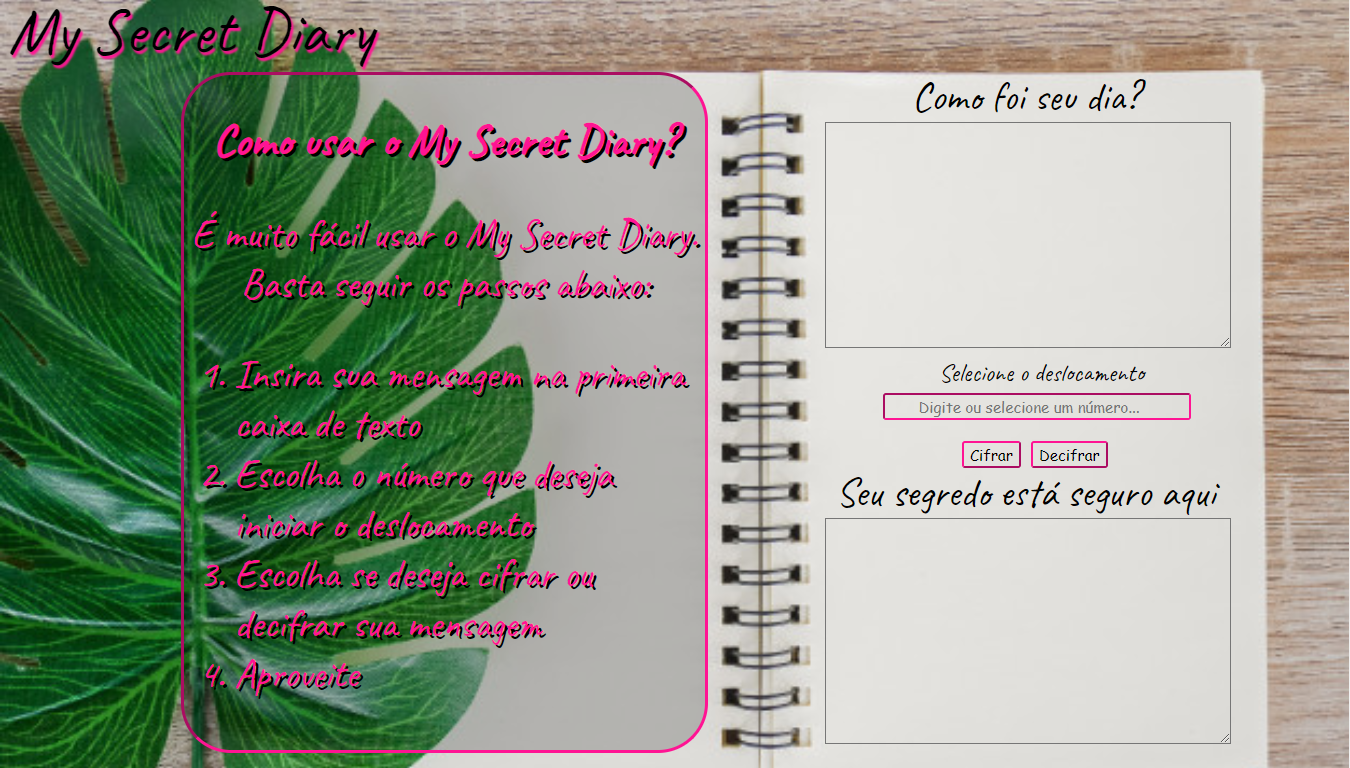 My Secret Diary
Como usar o My Secret Diary?
É muito fácil usar o My Secret Diary.
Basta seguir os passos abaixo:
1. Insira sua mensagem na primeira
caixa de texto
2. Escolha o número que deseja
iniciar o deslocamento
3. Escolha se deseja cifrar ou
decifrar sua mensagem
4. Aproveite
Como foi seu dia?
Selecione o deslocamento
Digite ou selecione um número...
Cifrar Decifrar
Seu segredo está seguro aqui